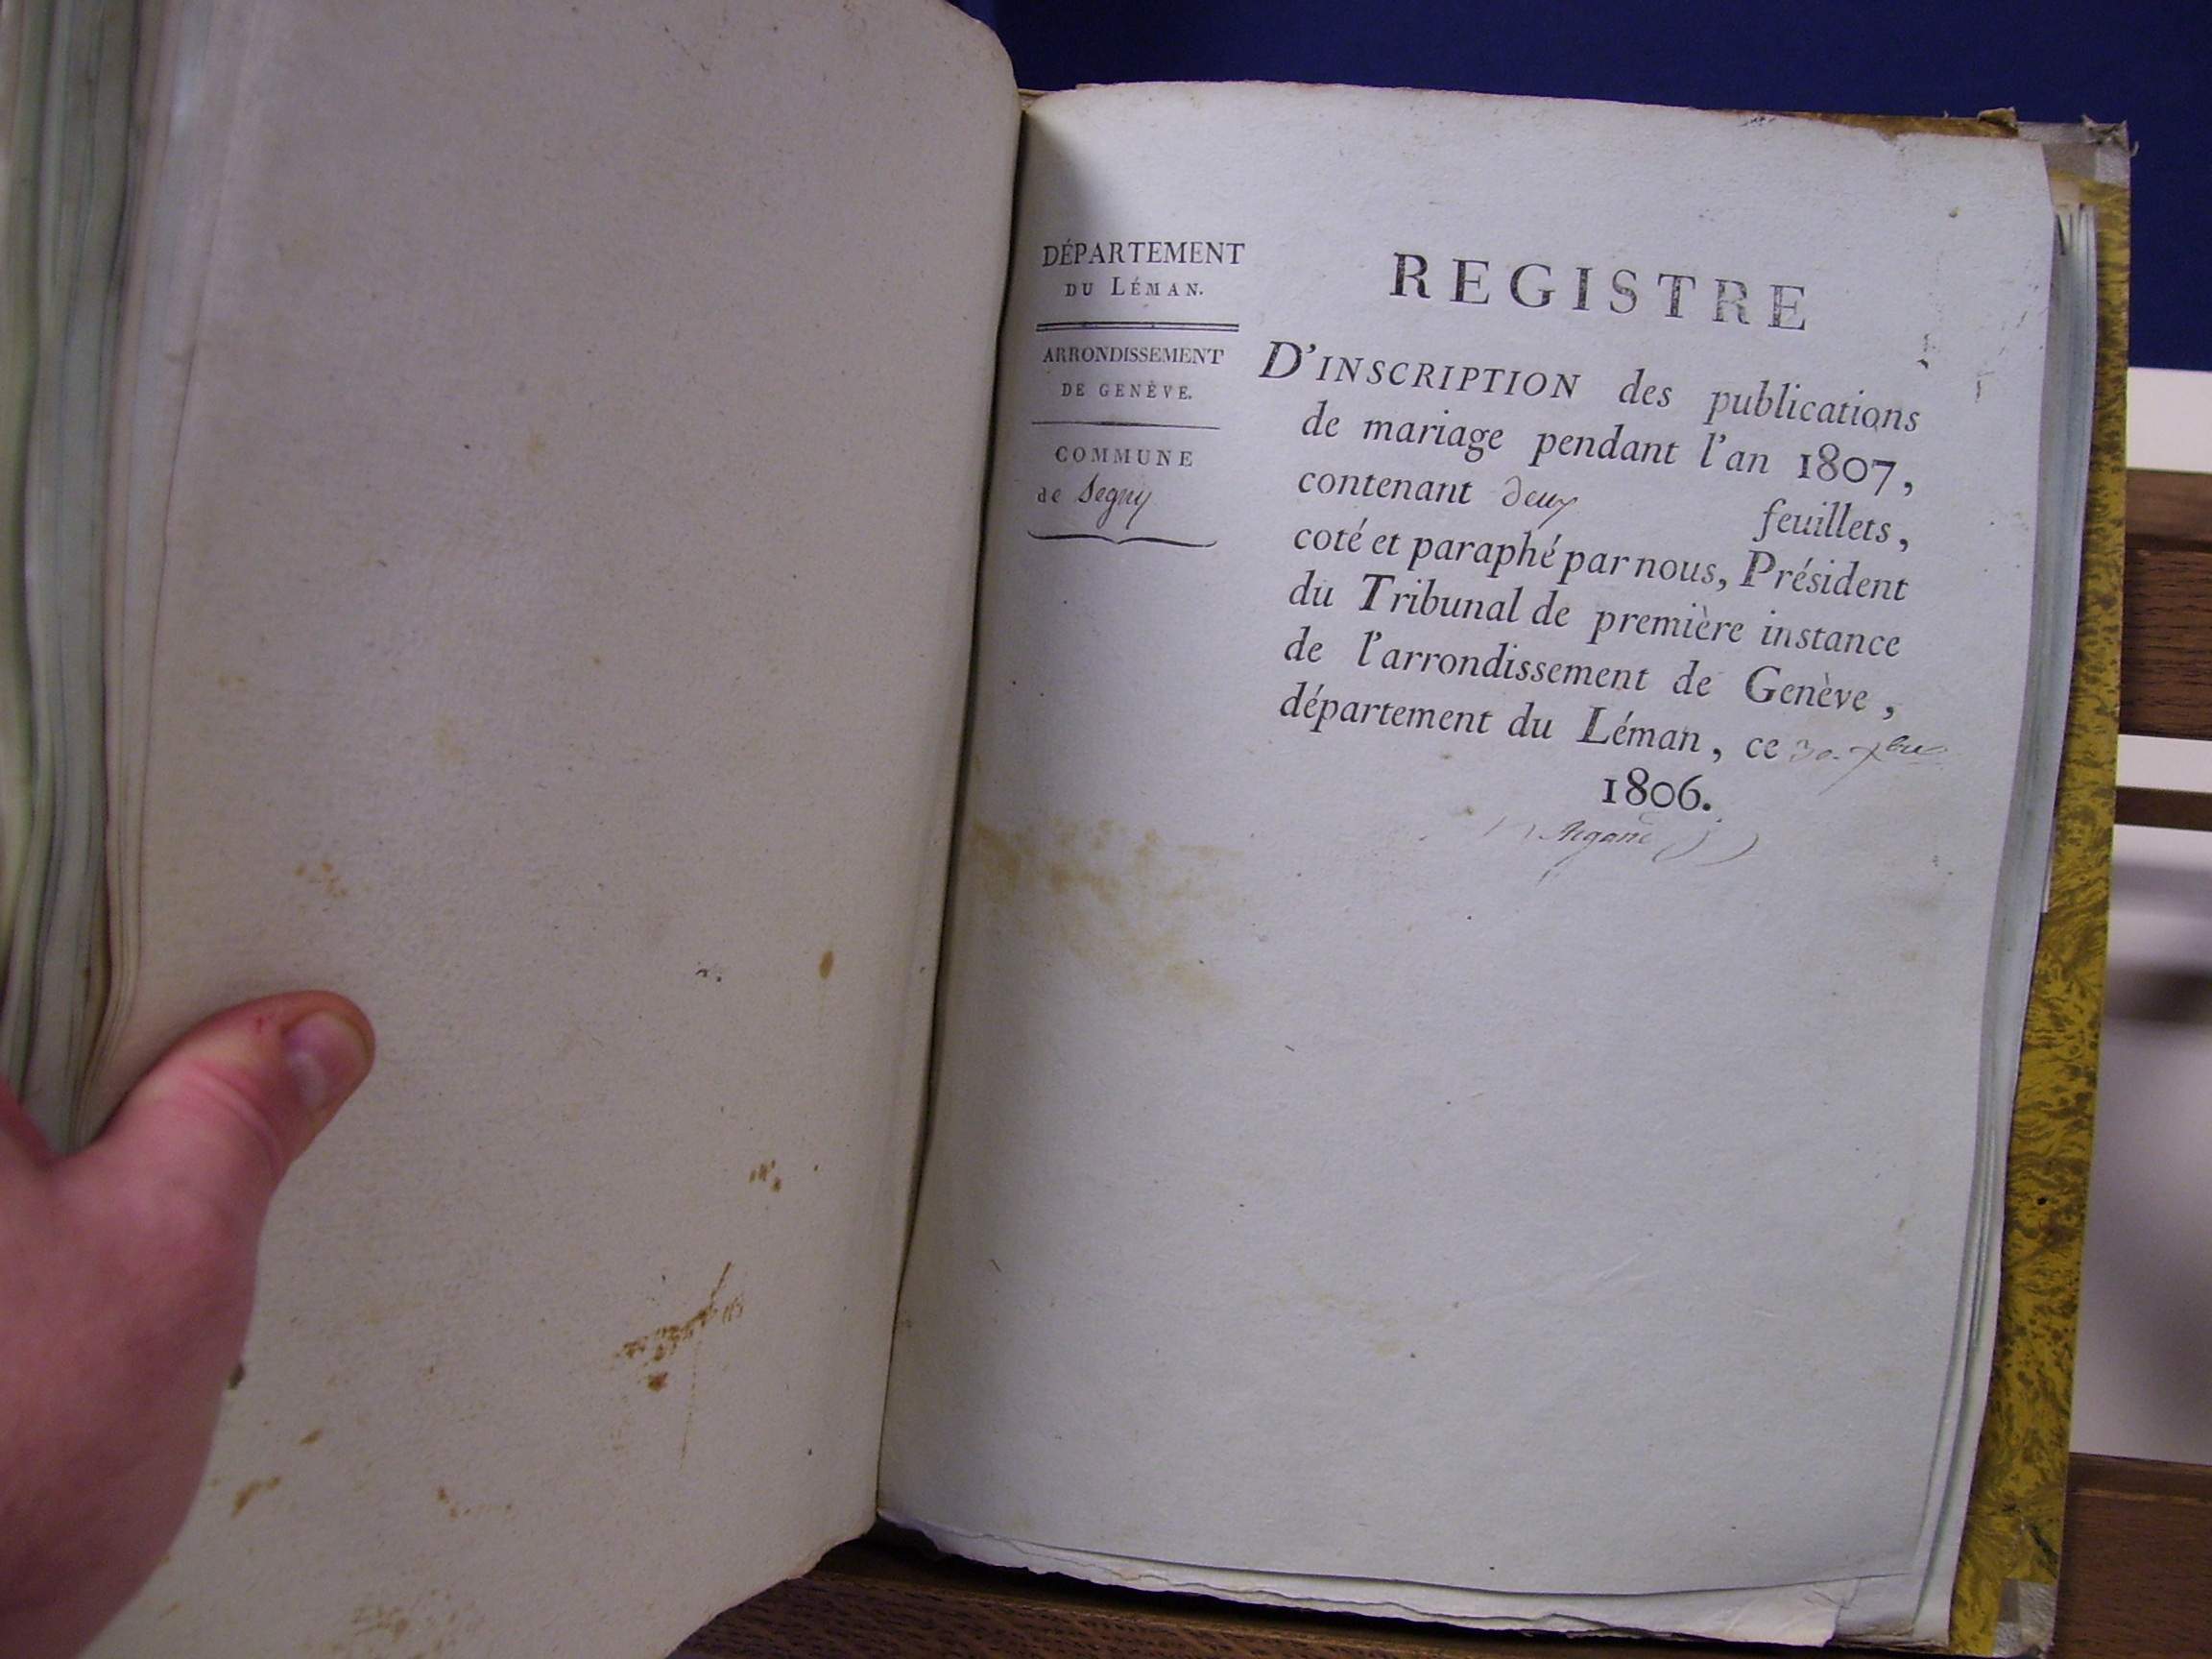 DÉPARTEMENT
DU LÉMAN.
ARRONDISSEMENT
DE GENÈVE.
COMMUNE
de Segny
REGISTRE
D'INSCRIPTION des publications
de mariage pendant l'an 1807,
contenant deux feuillets,
coté et paraphé par nous, Président
du Tribunal de première instance
de l'arrondissement de Genève,
département du Léman, ce 30. Xbre
1806.